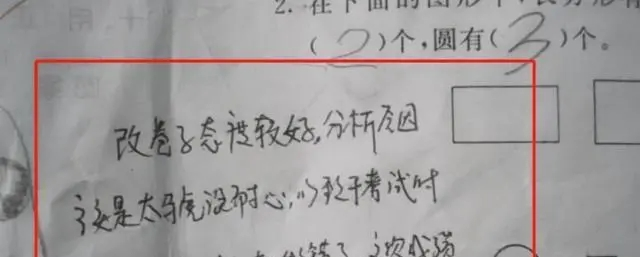 2. 在下面的图形中，长方形有
(2)个，圆有(3)个。
改卷子态度较好，分析原因
还是太马虎没耐心，以致于考试时
错了，这次成绩